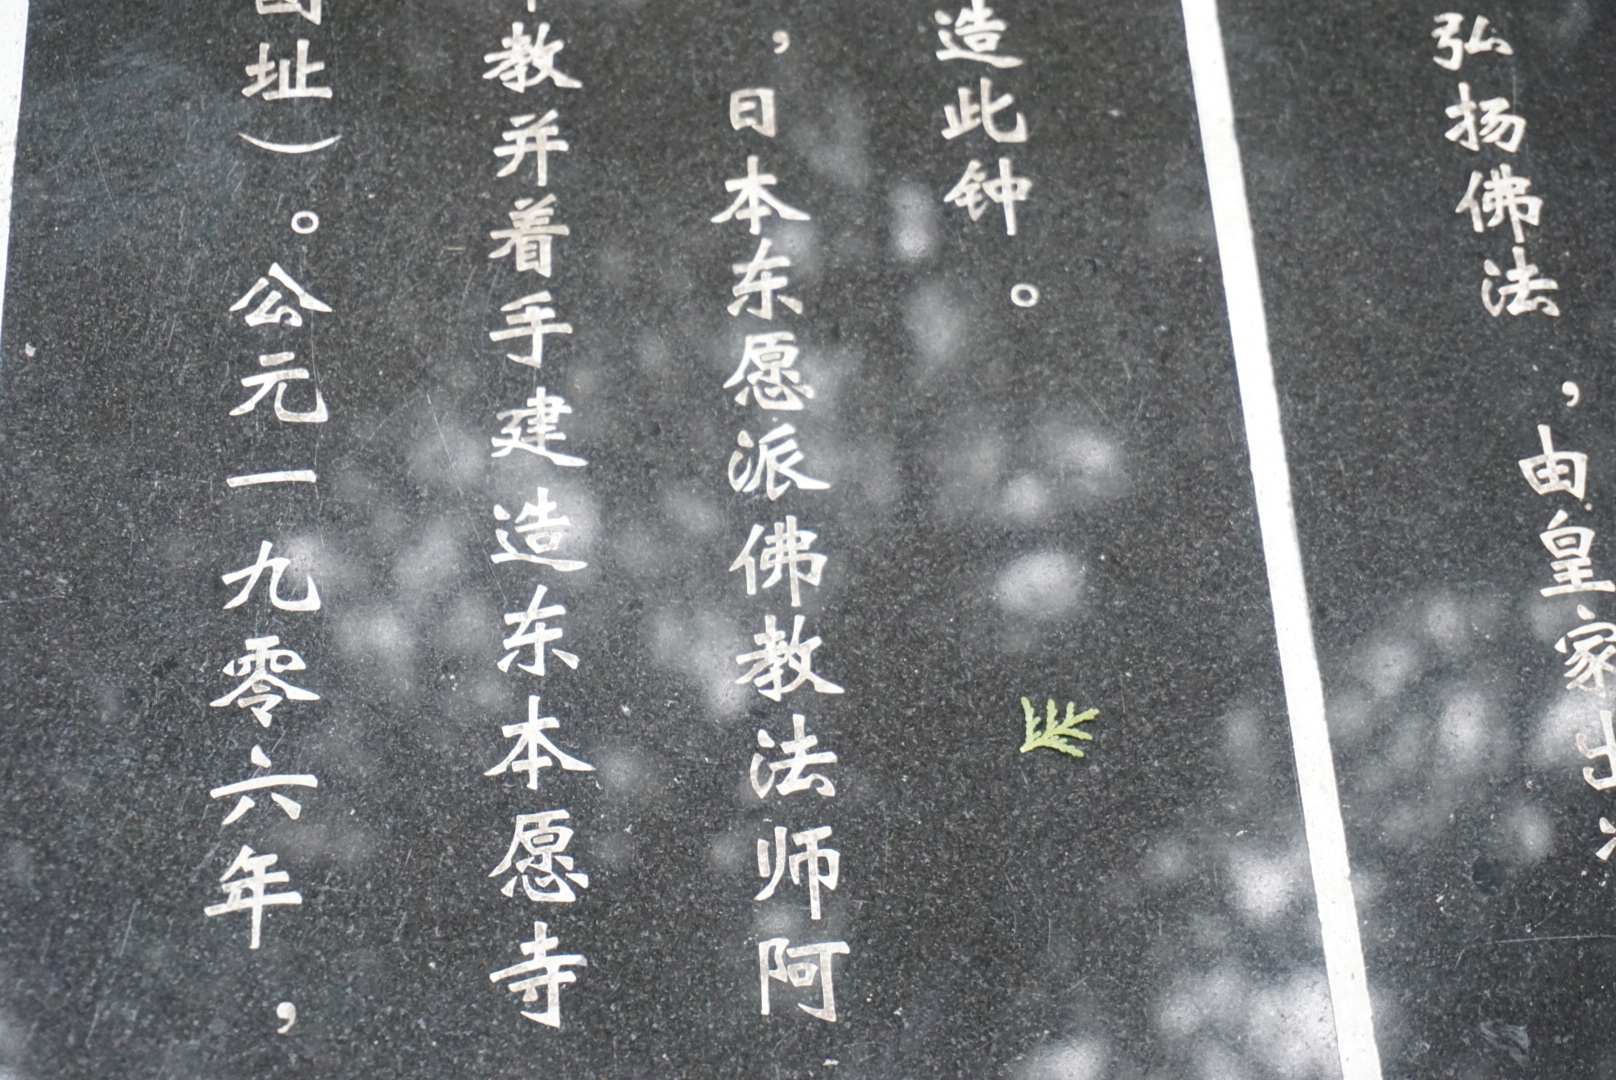 弘扬佛法，由皇家出
造此钟。
，日本东愿派佛教法师阿
教并着手建造东本愿寺
址）。公元一九零六年，